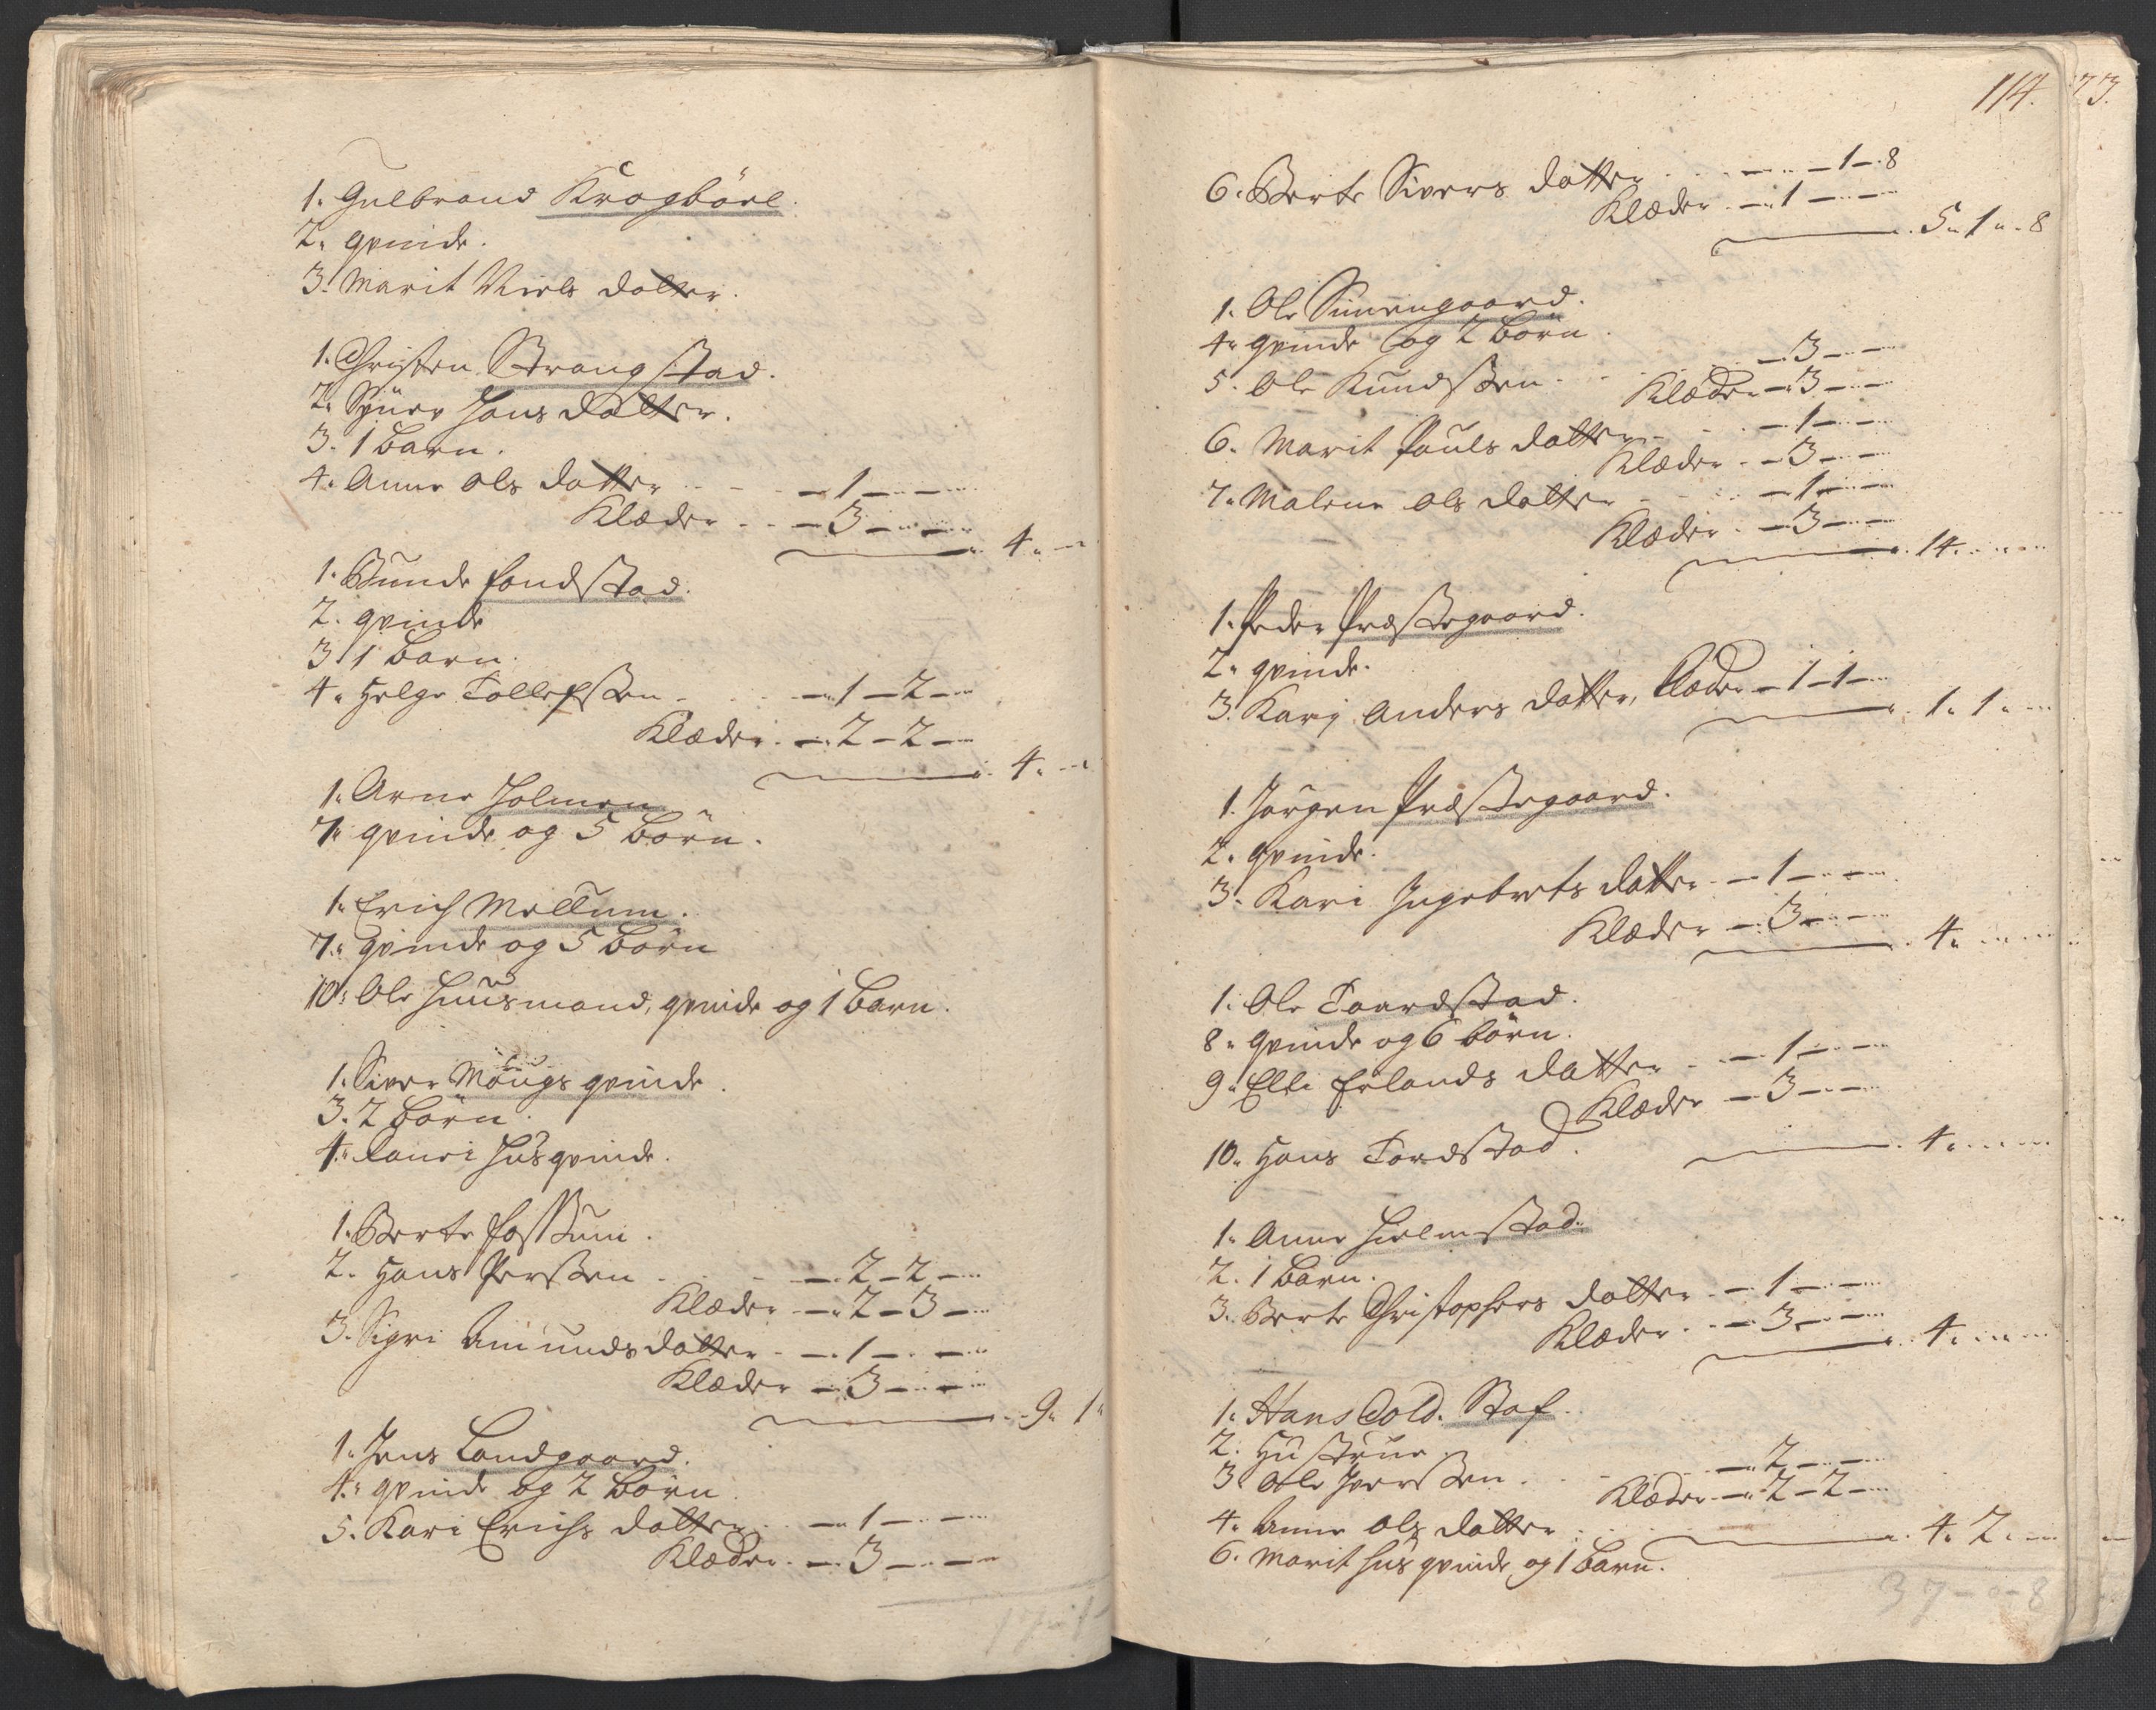 1. Gulbrand Krogböel.
2. qvinde.
3. Marit Niels datter.
1. Christen Strangstad.
2. Hans datter.
3. 1 barn.
4. Anne Ols datter - 1 -
Klæder - 3 -
4.
1. Gunde Fondstad.
2. qvinde
3. 1 barn.
4. Helge Tollefssen - 1 - 2 -
Klæder - 2 - 2 -
4.
1. Arne Holmen
7. qvinde og 5 börn.
1. Erich Mellum.
7. qvinde og 5 börn
10. Ole huusmand, qvinde og 1 barn.
1. Siver Mougs qvinde.
3. 2 börn.
4. Lauri husqvinde.
1. Berte Fossum.
2. Hans Perssen - 2 - 2 -
Klæder - 2 - 3 -
3. Sigri Amundsdatter - 1 -
Klæder - 3 -
9. 1
1. Jens Landgaard.
4. qvinde og 2 börn.
5. Kari Erichs datter - 1 -
Klæder - 3 -
114.
73.
6. Berte Sivers datter - 1 - 8
Klæder - 1 -
5. 1. 8
1. Ole Simengaard.
4. qvinde og 2 börn.
5. Ole Knudssen - 3 -
Klæder - 3 -
6. Marit Pouls datter - 1 -
Klæder - 3 -
7. Malene Ols datter - 1 -
Klæder - 3 -
14.
1. Peder Præstegaard.
2. qvinde.
3. Karj Anders datter, Klæder - 1 - 1 -
1. 1.
1. Jörgen Præstegaard.
2. qvinde.
3. Kari Ingebrets datter - 1 -
Klæder - 3 -
4.
1. Ole Taardstad.
8. qvinde og 6 börn.
9. Elli Erlands datter - 1 -
Klæder - 3 -
10. Hans Tordstad.
4.
1. Anne Hielmstad.
2. 1 barn.
3. Berte Christophers datter - 1 -
Klæder - 3 -
4.
1. Hans Cold. Staf.
2. Hustrue
3. Ole Iverssen - 2 -
Klæder - 2 - 2 -
4. Anne Ols datter
4. 2.
6. Marit husqvinde og 1 barn.
37 - 0 - 8